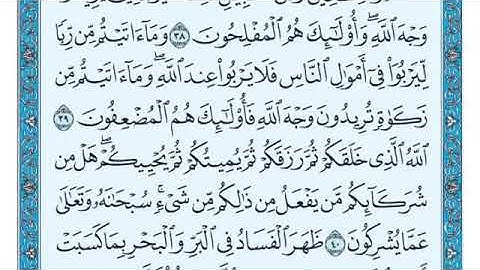 وَجْهَ ٱللَّهِۖ وَأُوْلَٰٓئِكَ هُمُ ٱلْمُفْلِحُونَ ٣٨ وَمَآ ءَاتَيْتُم مِّن رِّبٗا
لِّيَرْبُوَاْ فِيٓ أَمْوَٰلِ ٱلنَّاسِ فَلَا يَرْبُواْ عِندَ ٱللَّهِۖ وَمَآ ءَاتَيْتُم مِّن
زَكَوٰةٖ تُرِيدُونَ وَجْهَ ٱللَّهِ فَأُوْلَٰٓئِكَ هُمُ ٱلْمُضْعِفُونَ ٣٩
ٱللَّهُ ٱلَّذِي خَلَقَكُمْ ثُمَّ رَزَقَكُمْ ثُمَّ يُمِيتُكُمْ ثُمَّ يُحْيِيكُمْۖ هَلْ مِن
شُرَكَآئِكُم مَّن يَفْعَلُ مِن ذَٰلِكُم مِّن شَيْءٖۚ سُبْحَٰنَهُۥ وَتَعَٰلَىٰ
عَمَّا يُشْرِكُونَ ٤٠ ظَهَرَ ٱلْفَسَادُ فِي ٱلْبَرِّ وَٱلْبَحْرِ بِمَا كَسَبَتْ